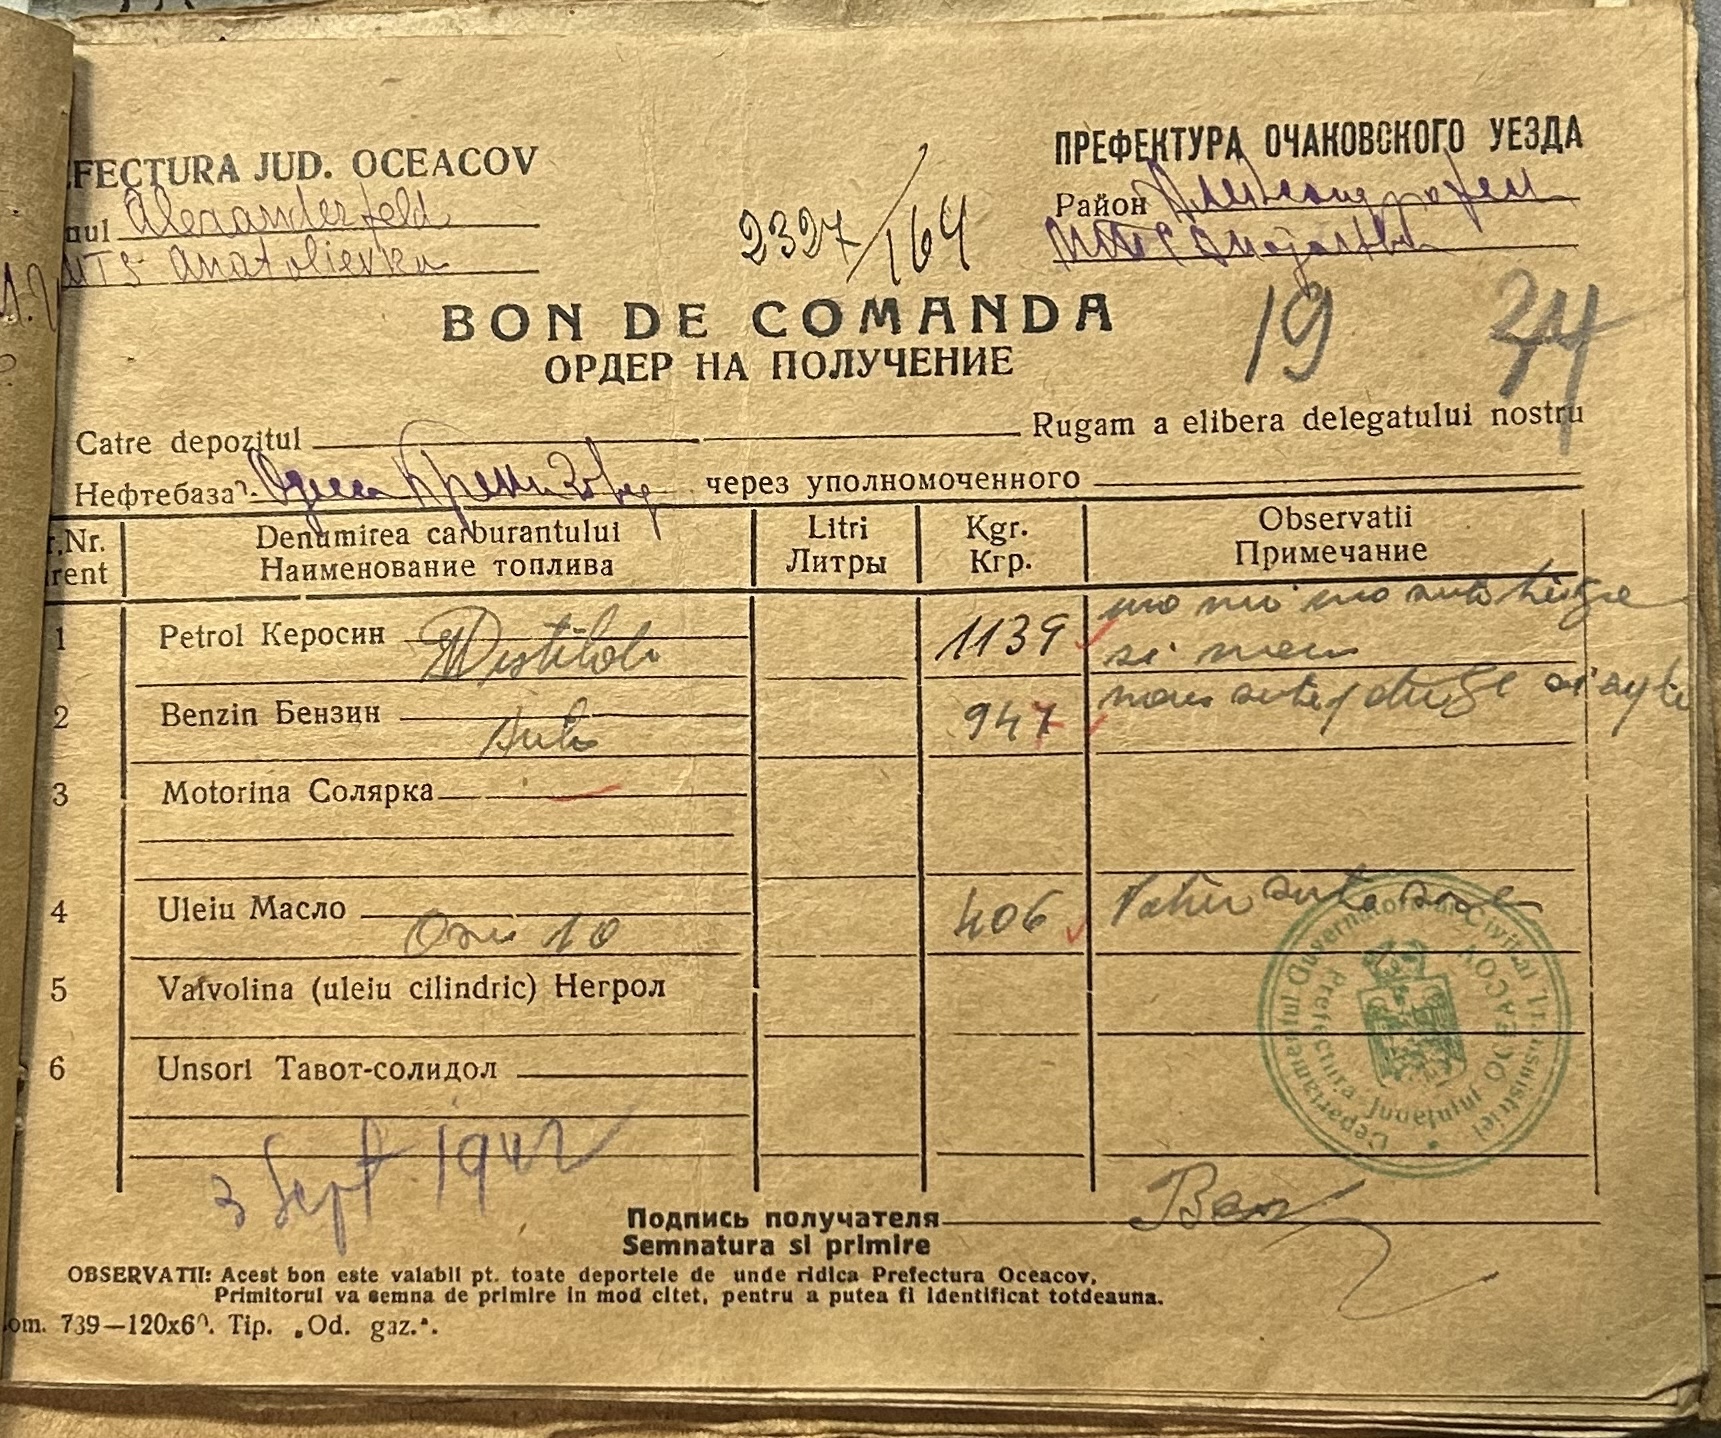 FECTURA JUD. OCEACOV
nul Alexanderfeld
MTS Anatolievka
2327/164
ПРЕФЕКТУРА ОЧАКОВСКОГО УЕЗДА
Район
МТС
BON DE COMANDA
ОРДЕР НА ПОЛУЧЕНИЕ
19
Catre depozitul Rugam a elibera delegatului nostru
Нефтебаза Одесса через уполномоченного
Nr. Denumirea carburantului Litri Kgr. Observatii
rent Наименование топлива Литры Кгр. Примечание
1 Petrol Керосин Distilat 1139 una mie una suta treizeci
si noua
2 Benzin Бензин Auto 947 noua sute patruzeci si sapte
3 Motorina Солярка
4 Uleiu Масло 10 406 Patru sute sase
5 Valvolina (uleiu cilindric) Негрол
6 Unsori Тавот-солидол
Departamentul Guvernatorului Civil al Transnistriei
Prefectura Judetului OCEACOV
3 Sept. 1942
Подпись получателя
Semnatura si primire
OBSERVATII: Acest bon este valabil pt. toate deportele de unde ridica Prefectura Oceacov.
Primitorul va semna de primire in mod citet, pentru a putea fi identificat totdeauna.
om. 739—120x60. Tip. „Od. gaz.".